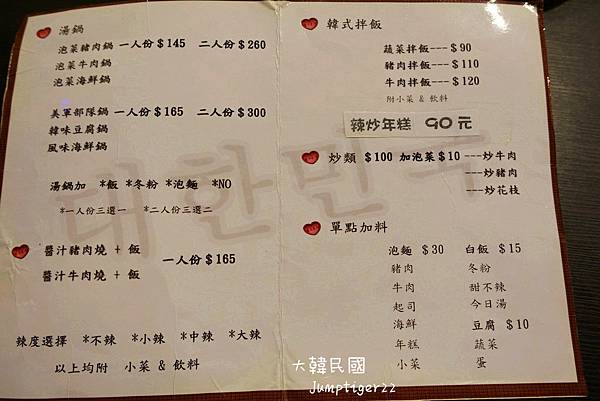 湯鍋
泡菜豬肉鍋 一人份$145 二人份$260
泡菜牛肉鍋
泡菜海鮮鍋
美軍部隊鍋 一人份$165 二人份$300
韓味豆腐鍋
風味海鮮鍋
湯鍋加 *飯 *冬粉 *泡麵 *NO
*一人份三選一 *二人份三選二
醬汁豬肉燒 + 飯
一人份$165
醬汁牛肉燒 + 飯
辣度選擇 *不辣 *小辣 *中辣 *大辣
以上均附 小菜 & 飲料
韓式拌飯
蔬菜拌飯---$90
豬肉拌飯---$110
牛肉拌飯---$120
附小菜 & 飲料
辣炒年糕 90元
炒類 $100 加泡菜$10 ---炒牛肉
---炒豬肉
---炒花枝
單點加料
泡麵 $30 白飯 $15
豬肉 冬粉
牛肉 甜不辣
起司 今日湯
海鮮 豆腐 $10
年糕 蔬菜
小菜 蛋
대한민국
大韓民國
Jumptiger22